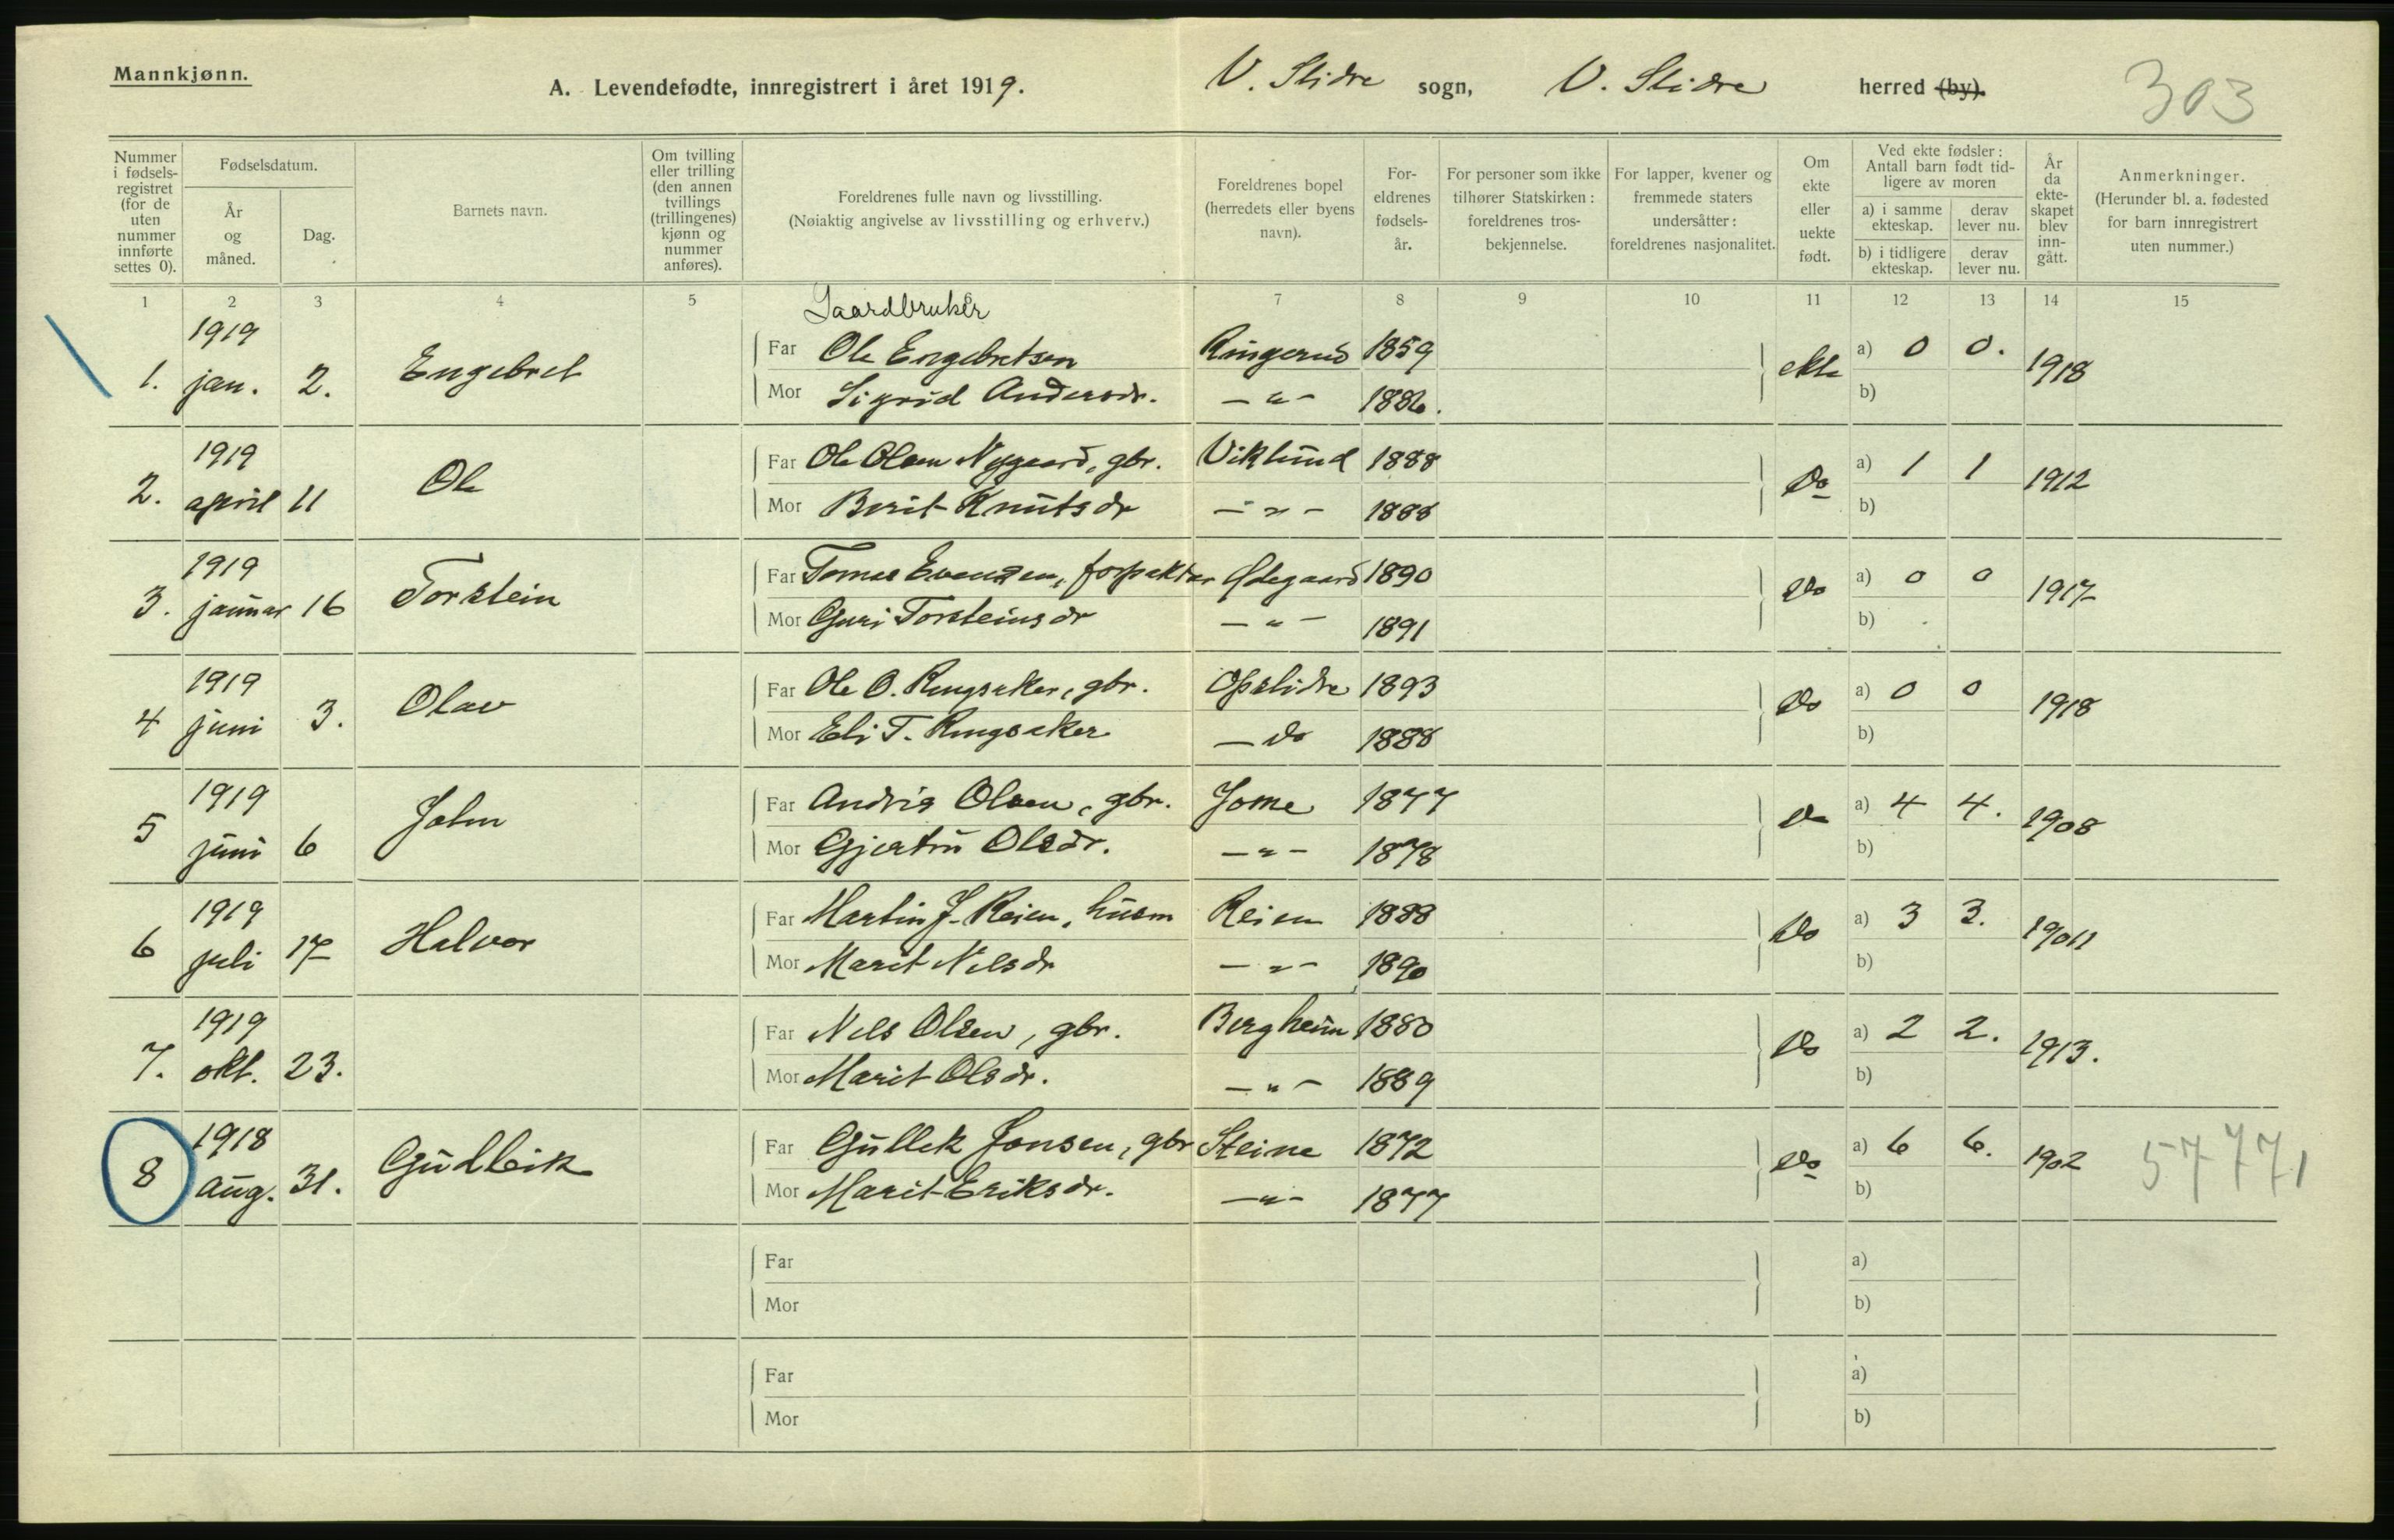 Mannkjønn.
A. Levendefødte, innregistrert i året 1919.
V. Slidre sogn, V. Slidre herred (by).
303
Nummer i fødsels-registret (for de uten nummer innførte settes 0).
Fødselsdatum.
År og måned.
Dag.
Barnets navn.
Om tvilling eller trilling (den annen tvillings (trillingenes) kjønn og nummer anføres).
Foreldrenes fulle navn og livsstilling.
(Nøiaktig angivelse av livsstilling og erhverv.)
Foreldrenes bopel (herredets eller byens navn).
For-eldrenes fødsels-år.
For personer som ikke tilhører Statskirken: foreldrenes tros-bekjennelse.
For lapper, kvener og fremmede staters undersåtter: foreldrenes nasjonalitet.
Om ekte eller uekte født.
Ved ekte fødsler: Antall barn født tid-ligere av moren
a) i samme ekteskap.
derav lever nu.
b) i tidligere ekteskap.
derav lever nu.
År da ekte-skapet blev inn-gått.
Anmerkninger.
(Herunder bl. a. fødested for barn innregistrert uten nummer.)
1 2 3 4 5 7 8 9 10 11 12 13 14 15
Gaardbruker
1. 1919 jan. 2. Engebret
Far Ole Engebretsen Ringerud 1859
Mor Sigrid Andersdr. — " — 1886.
ekte a) 0 0. b) 1918
2. 1919 april 11 Ole
Far Ole Olsen Nygaard, gbr. Viklund 1888
Mor Berit Knutsdr — " — 1888
Do a) 1 1 b) 1912
3. 1919 januar 16 Torstein
Far Tomas Evensen, forpakter Ødegaard 1890
Mor Guri Torsteinsdr — " — 1891
Do a) 0 0 b) 1917
4 1919 juni 3. Olav
Far Ole O. Ringsaker, gbr. Opslidre 1893
Mor Eli T. Ringsaker — do 1888
Do a) 0 0 b) 1918
5 1919 juni 6 John
Far Andris Olsen, gbr. Jome 1877
Mor Gjertru Olsdr. — " — 1878
Do a) 4 4. b) 1908
6 1919 juli 17 Halvor
Far Martin J. Reien, husm Reien 1888
Mor Marit Nilsdr — " — 1890
Do a) 3 3. b)
7. 1919 okt. 23.
Far Nels Olsen, gbr. Bergheim 1880
Mor Marit Olsdr. — " — 1889
Do a) 2 2. b) 1913.
8 1918 aug. 31. Gudleik
Far Gullek Jonsen, gbr Steine 1872
Mor Marit Eriksdr. — " — 1877
Do a) 6 6. b) 1902 57771
Far a)
Mor b)
Far a)
Mor b)